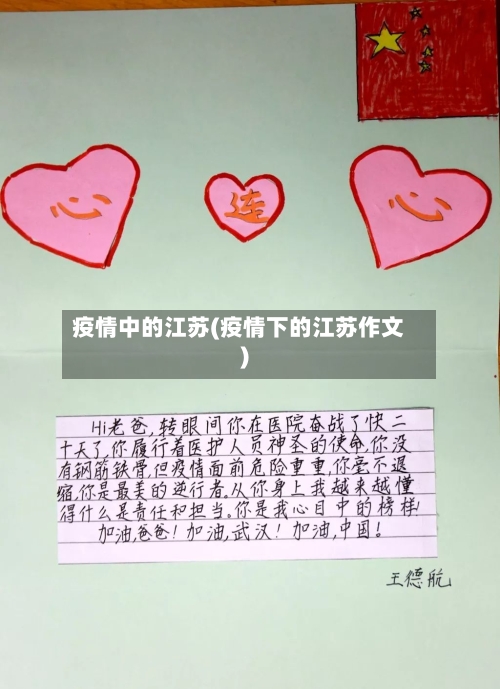 心 连 心
疫情中的江苏(疫情下的江苏作文
)
Hi老爸,转眼间你在医院奋战了快二
十天了,你履行着医护人员神圣的使命,你没
有钢筋铁骨,但疫情面前危险重重,你毫不退
缩,你是最美的逆行者,从你身上我越来越懂
得什么是责任和担当,你是我心目中的榜样!
加油,爸爸!加油,武汉!加油,中国!
王德航